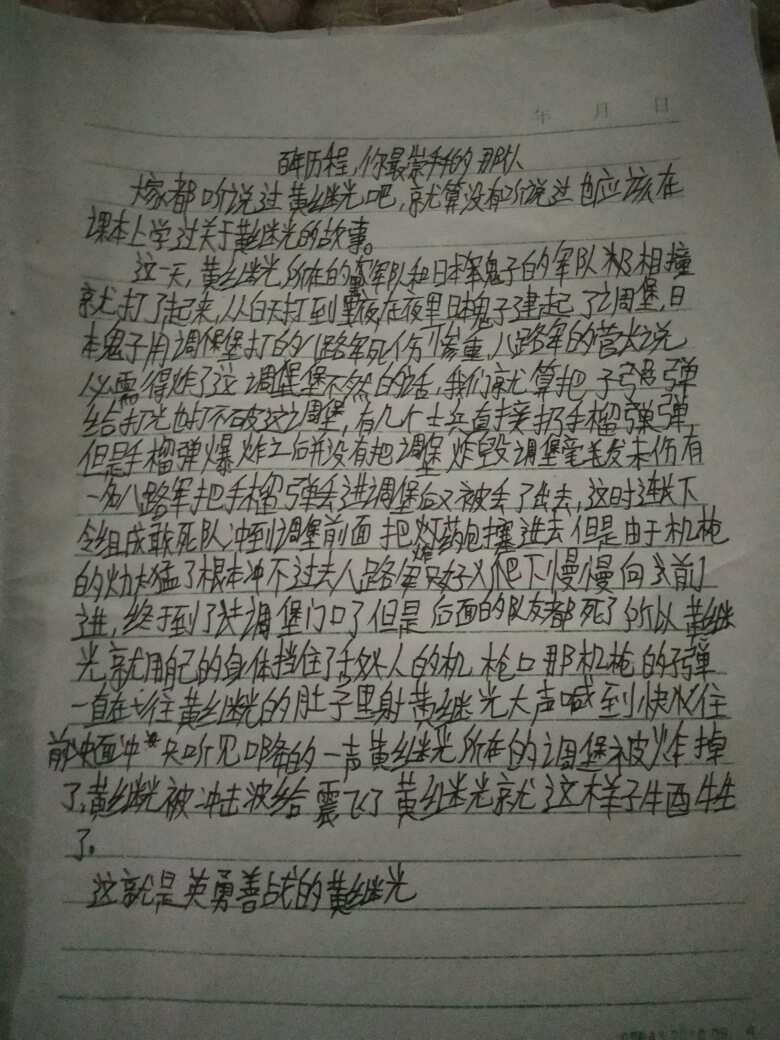 年 月 日
百年历程,你最崇拜的那个人
大家都听说过黄继光吧,就算没有听说过也应该在
课本上学过关于黄继光的故事。
这一天,黄继光所在的军队和日本军鬼子的军队相撞
就打了起来,从白天打到黑夜在夜里日本鬼子建起了调堡,日
本鬼子用调堡打的八路军死伤惨重,八路军的营长说
必需得炸了这调堡不然的话,我们就算把子弹
给打光也打不破这调堡,有几个士兵直接扔手榴弹,
但是手榴弹爆炸之后并没有把调堡炸毁调堡毫毛发未伤有
一名八路军把手榴弹丢进调堡后又被丢了出去,这时连长下
令组成敢死队冲到调堡前面把炸药包塞进去但是由于机枪
的火力太猛了根本冲不过去八路军只好爬下慢慢向前
进,终于到了调堡门口了但是后面的队友都死了所以黄继
光就用自己的身体挡住了敌人的机枪口那机枪的子弹
一直在往黄继光的肚子里射黄继光大声喊到快往
前面冲只听见的一声黄继光所在的调堡被炸掉
了,黄继光被冲击波给震飞了黄继光就这样子牺牲
了。
这就是英勇善战的黄继光